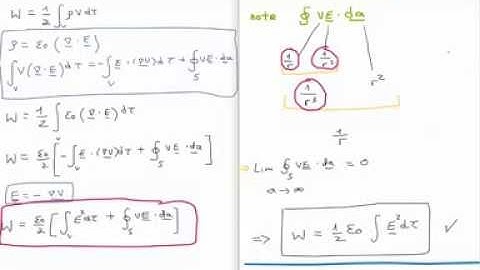 W = 1/2 ∫_V ρV dτ
ρ = ε₀ (∇ · E)
∫_V V(∇ · E) dτ = -∫_V E · (∇V) dτ + ∮_S VE · da
W = 1/2 ∫ ε₀ (∇ · E) dτ
W = ε₀/2 [ -∫_V E · (∇V) dτ + ∮_S VE · da ]
E = - ∇V
W = ε₀/2 [ ∫_V E² dτ + ∮_S VE · da ]
note ∮ VE · da
1/r 1/r² r²
1/r³
1/r
Lim ∮_S VE · da = 0
a → ∞
=> W = 1/2 ε₀ ∫ E² dτ ✓